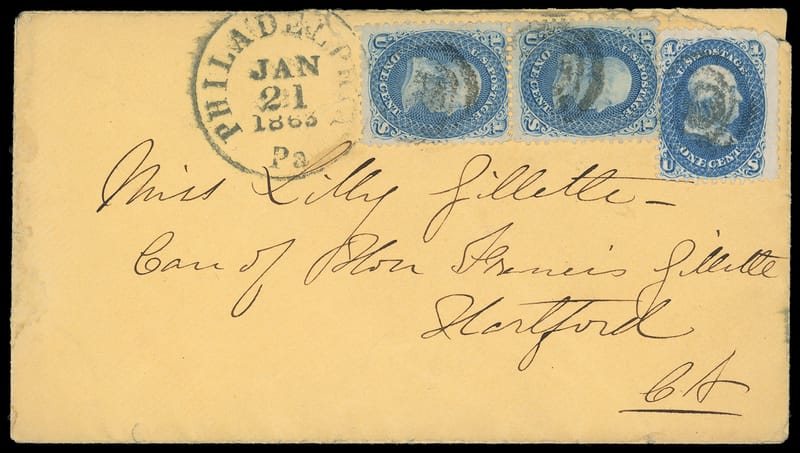 PHILADELPHIA
JAN
21
1863
Pa
U ONE CENT S
U.S. POSTAGE
U ONE CENT S
U.S. POSTAGE
U.S. POSTAGE
U ONE CENT S
Miss Lilly Gillette -
Care of Hon Francis Gillette
Hartford
Ct